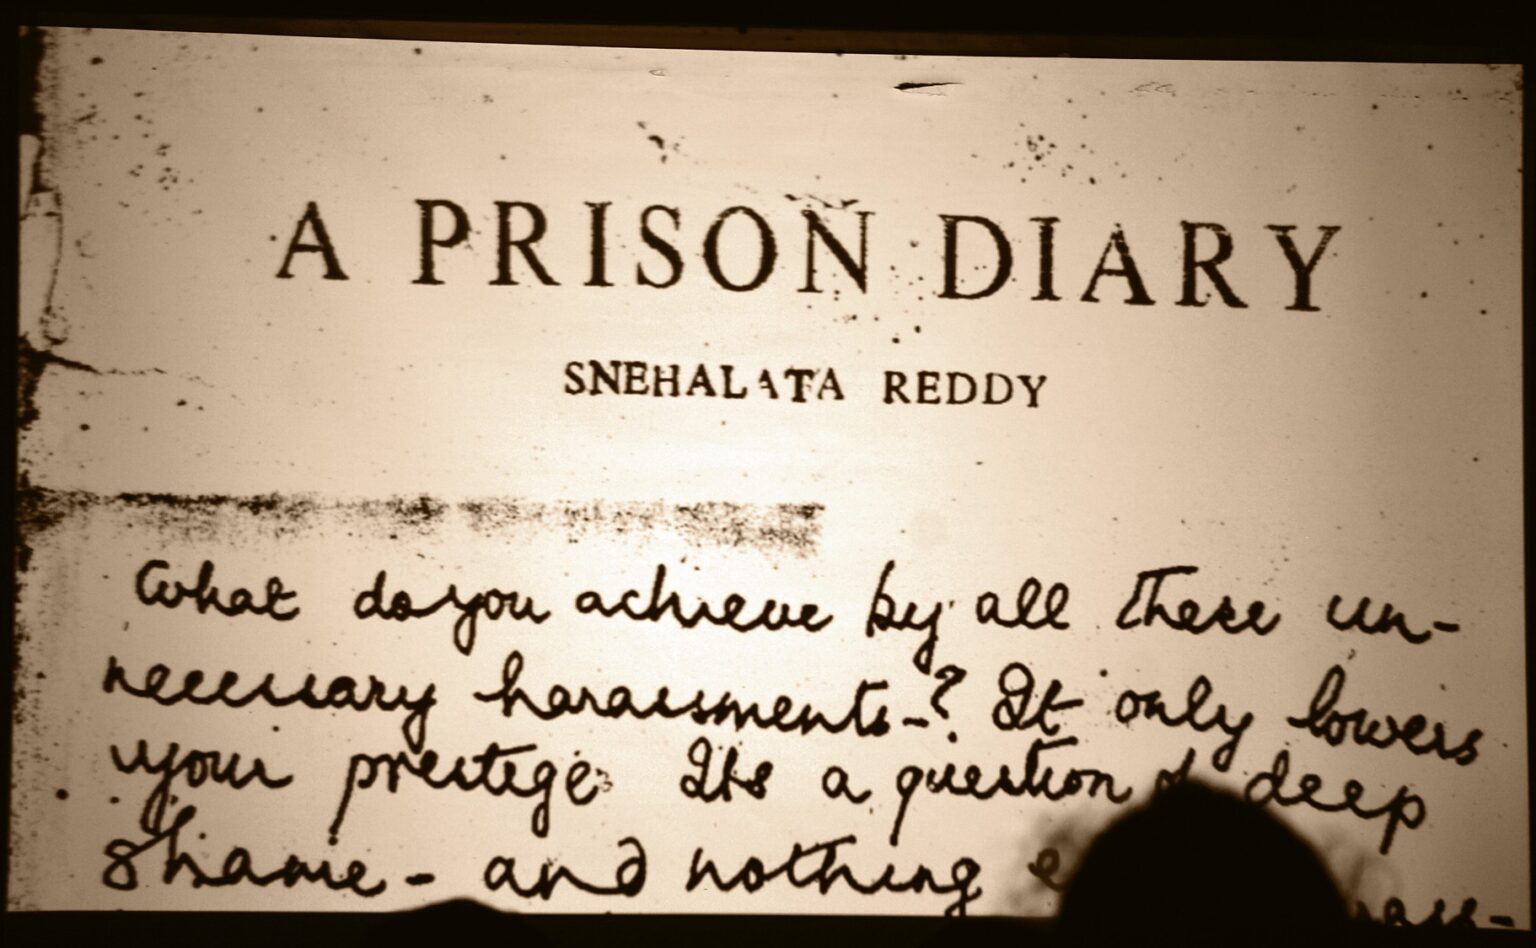 A PRISON DIARY
SNEHALATA REDDY
What do you achieve by all these un-
necessary harassments-? It only lowers
your prestige. Its a question of deep
shame - and nothing